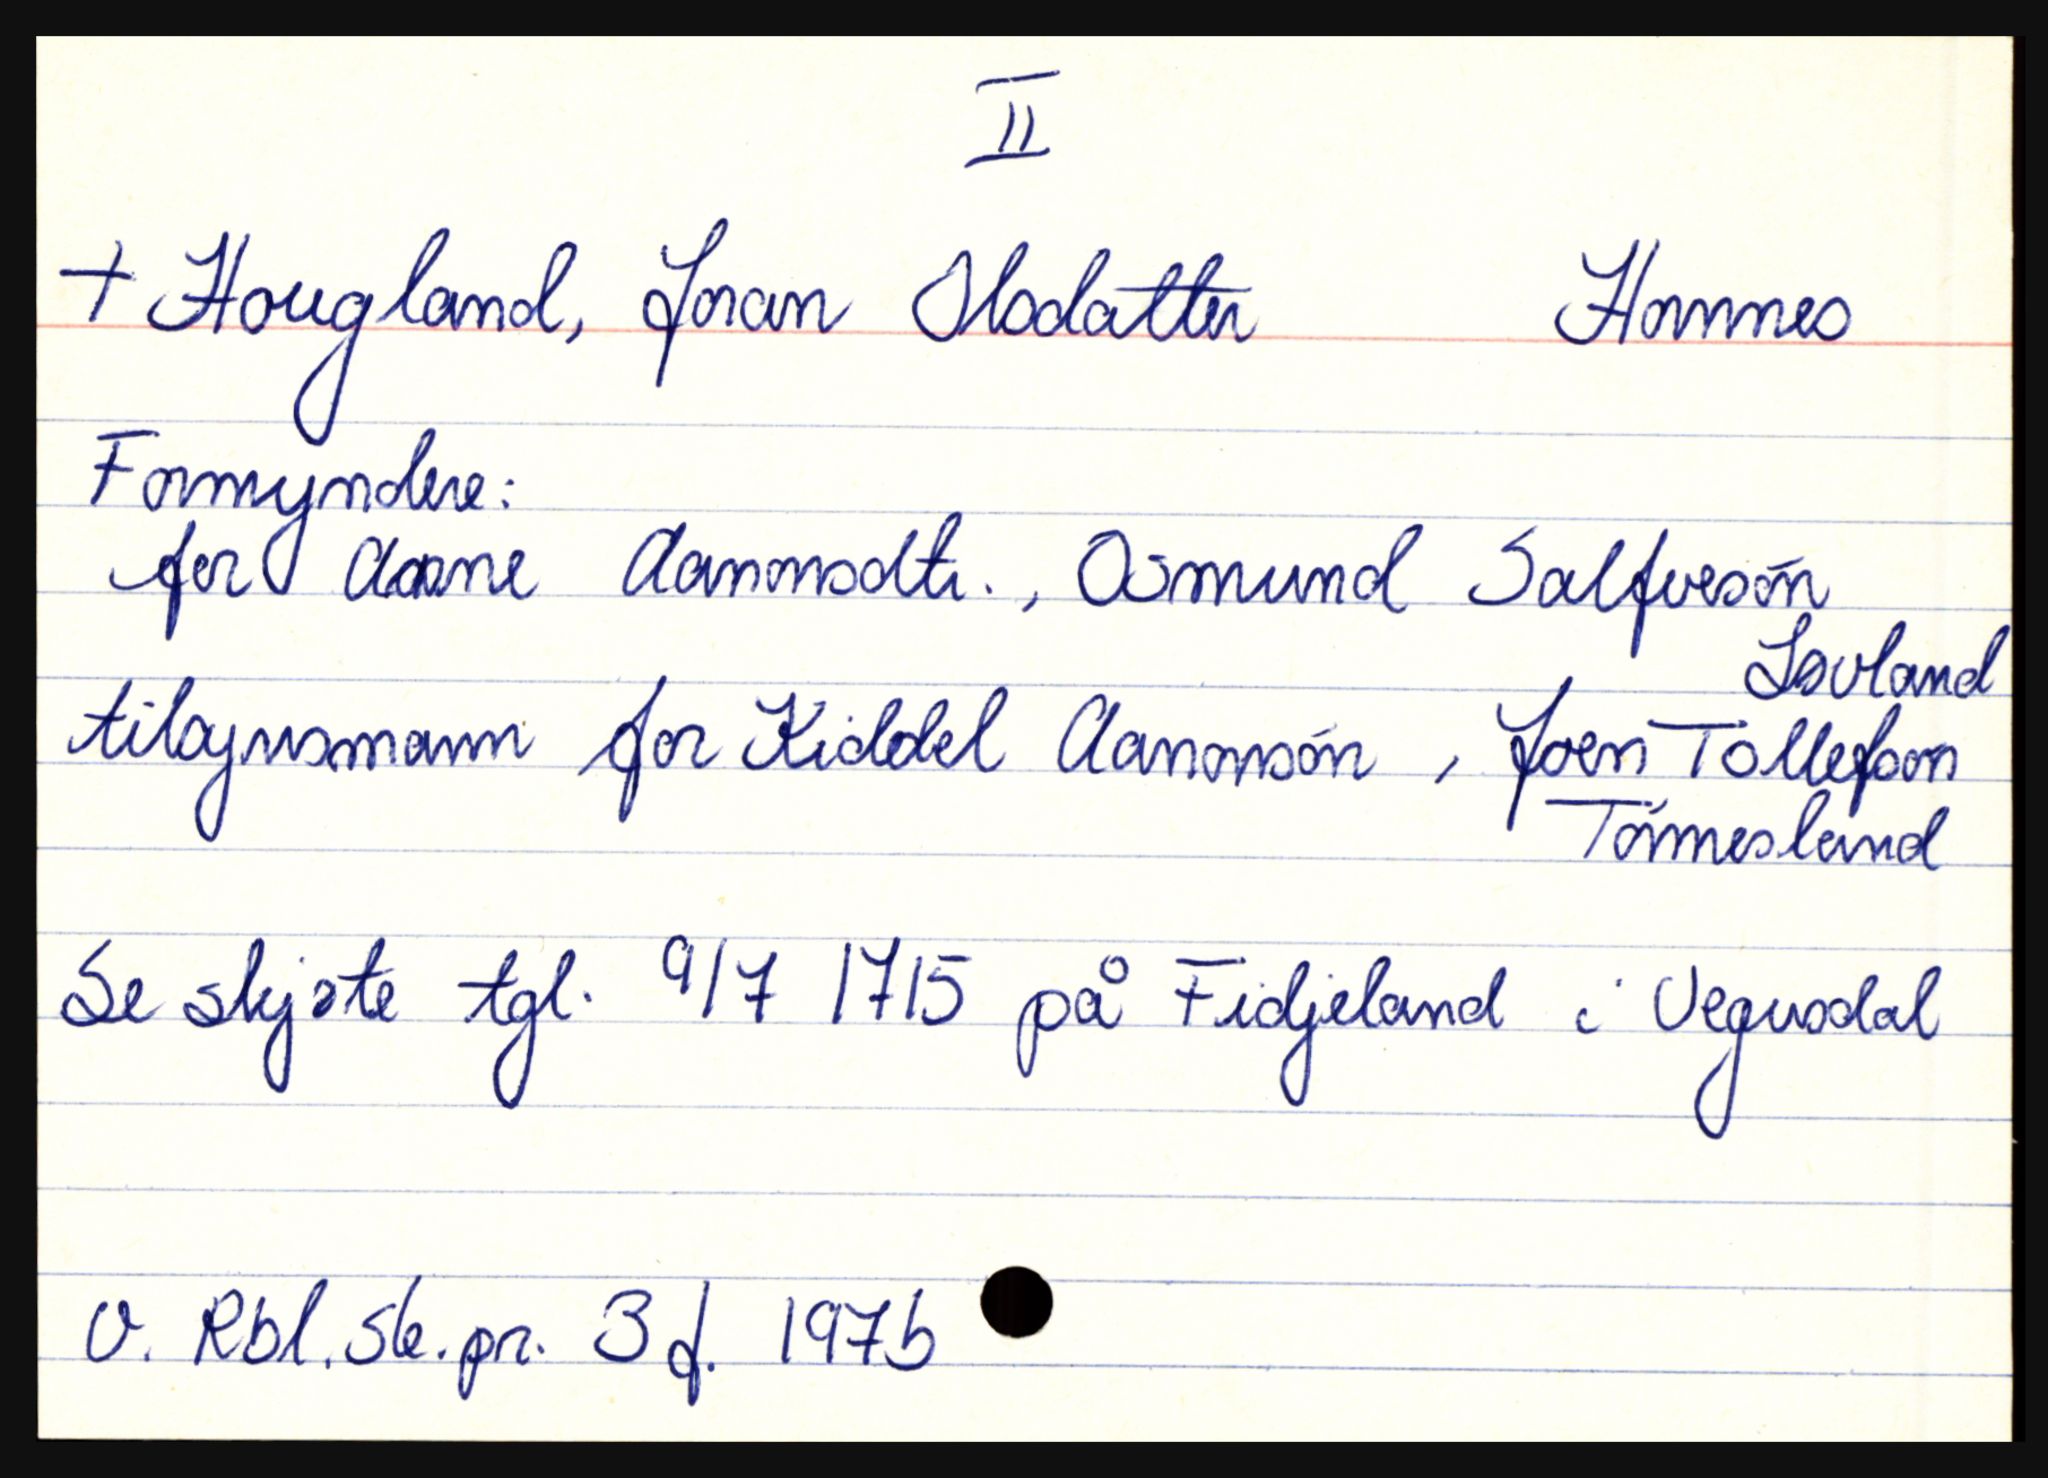 II
+ Hougland, Joran Olsdatter Hornnes
Formyndere:
for Aasne Aanonsdtr., Osmund Salfvesön
Løvland
tilsynsmann for Kiddel Aanonsön, Joen Tollefsön
Tönnesland
Se skjøte tgl. 9/7 1715 på Fidjeland i Vegusdal
V. Rbl. sk. pr. 3 f. 197b